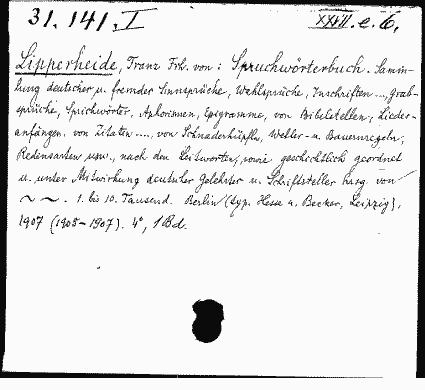 31.141.I XXIII.e.6.
Lipperheide, Franz Frh. von: Spruchwörterbuch. Samm-
lung deutscher u. fremder Sinnsprüche, Wahlsprüche, Inschriften ..., Grab-
sprüche, Sprichwörter, Aphorismen, Epigramme, von Bibelstellen, Lieder-
anfängen, von Zitaten ...., von Schnaderhüpfln, Wetter- u. Bauernregeln,
Redensarten usw., nach den Leitworten, sowie geschichtlich geordnet
u. unter Mitwirkung deutscher Gelehrter u. Schriftsteller hrsg. von
~ ~. 1. bis 10. Tausend. Berlin (typ. Hesse u. Becker, Leipzig),
1907 (1905-1907). 4°, 1 Bd.